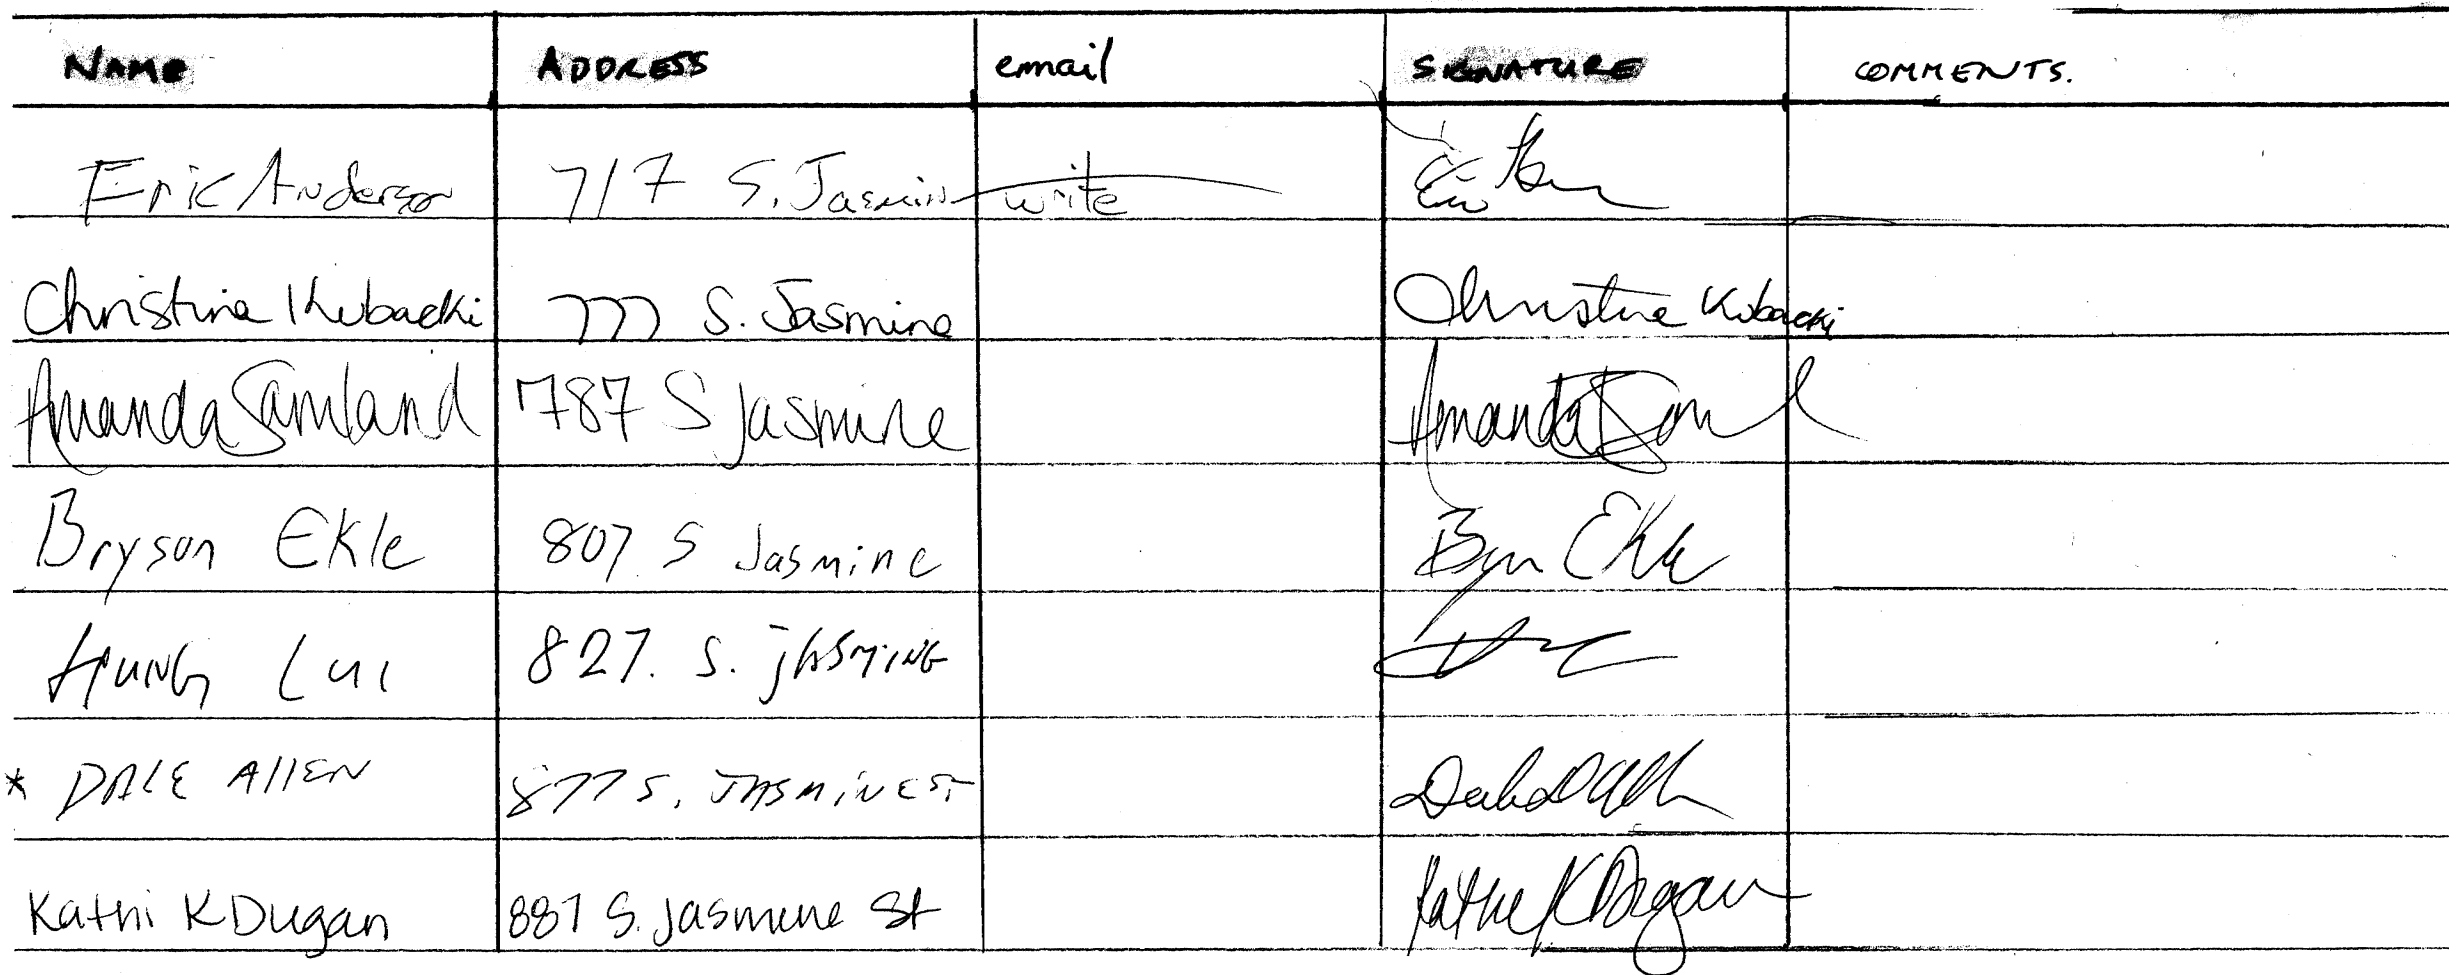 NAME ADDRESS email SIGNATURE COMMENTS.
Eric Anderson 717 S. Jasmin write
Christine Kubacki 777 S. Jasmine Christine Kubacki
Amanda Samland 787 S Jasmine Amanda
Bryson Ekle 807 S Jasmine Ekle
HUNG LUI 827. S. JASMINE
* DALE AllEN 877 S. JASMINE ST
Kathi K Dugan 887 S. Jasmine St Kathi K Dugan